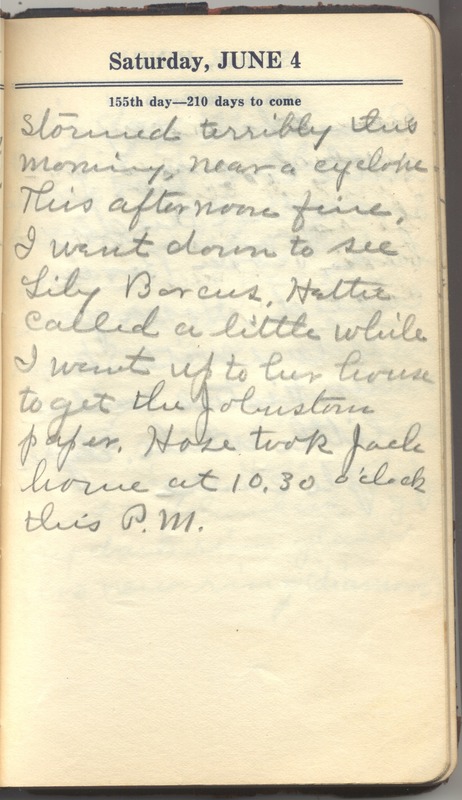 Saturday, JUNE 4
155th day—210 days to come
Stormed terribly this
morning, near a cyclone.
This afternoon fine.
I went down to see
Lily Barcus. Hattie
called a little while
I went up to her house
to get the Johnstown
paper. Hase took Jack
home at 10.30 o'clock
this P.M.